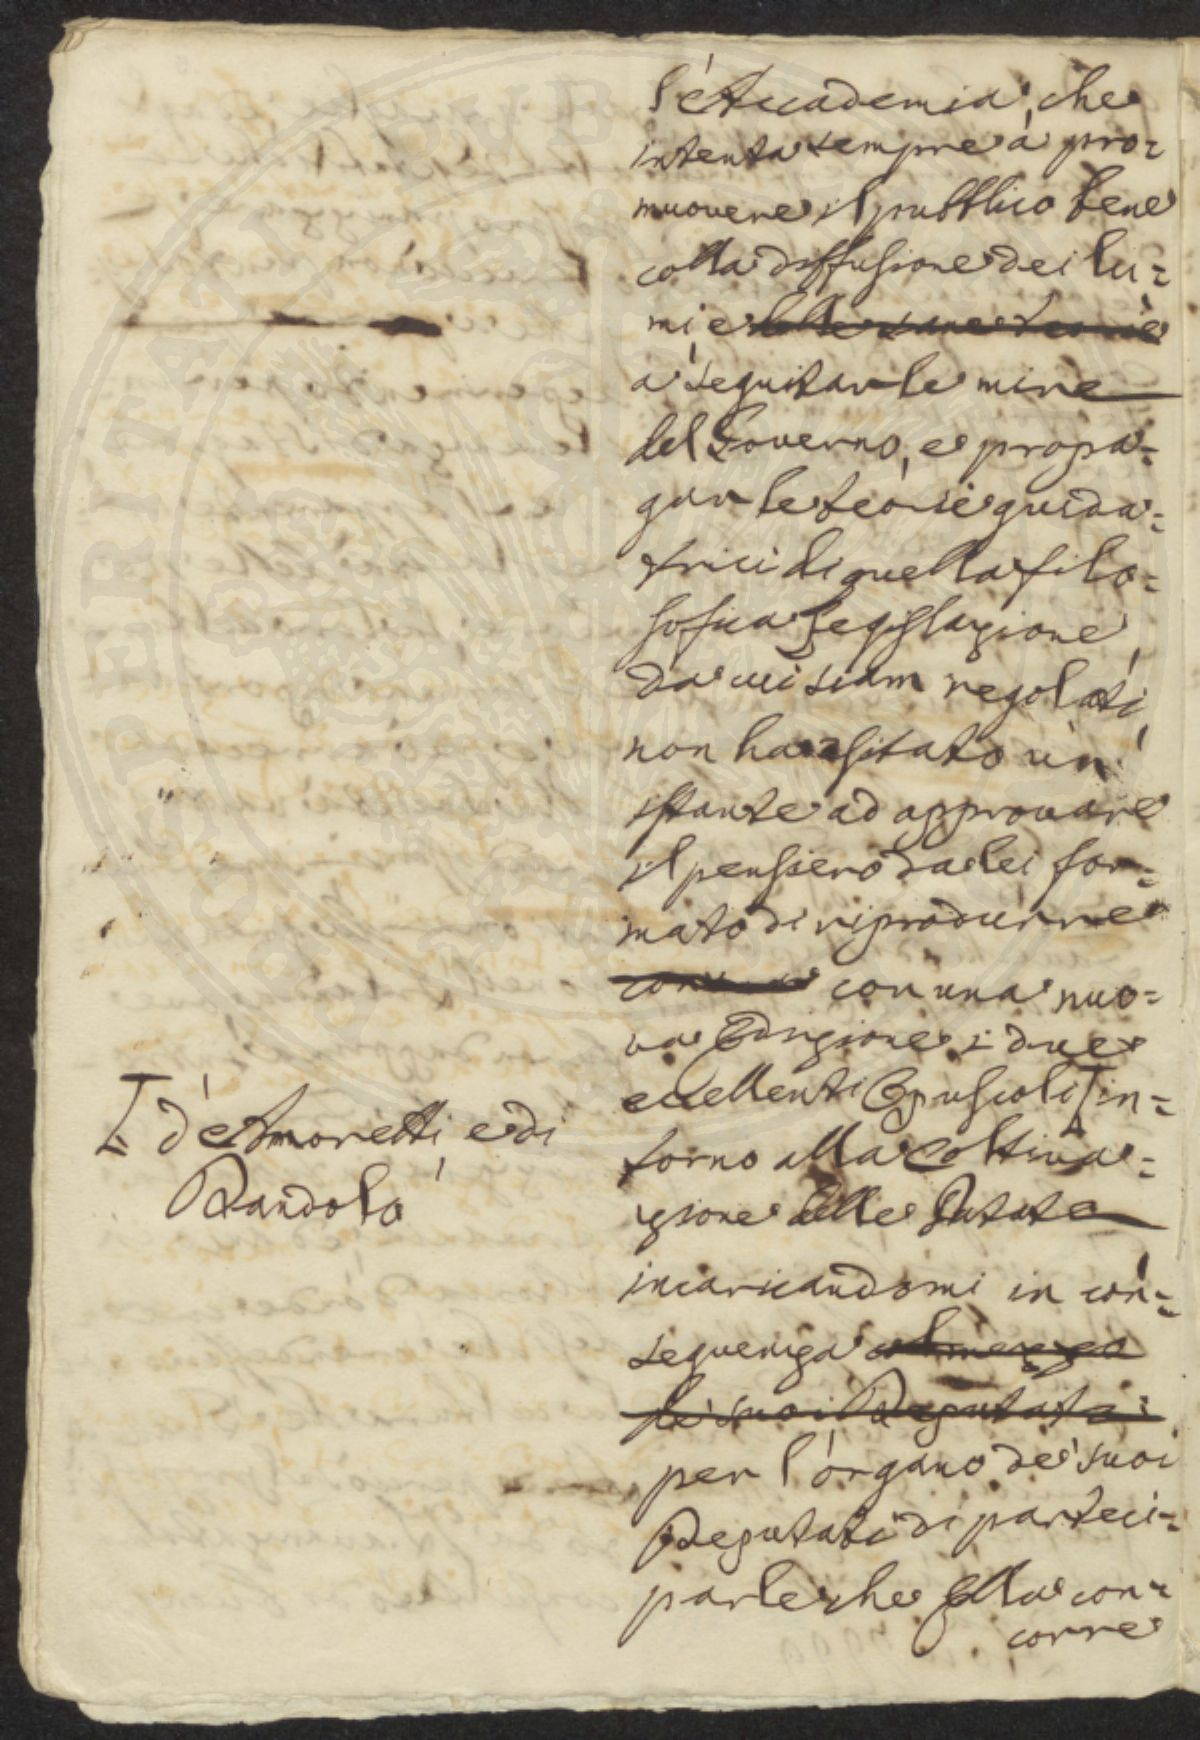 l'Accademia, che
intenta sempre a pro=
muovere il pubblico bene
colla diffusione dei lu=
mi, e delle sane teorie
a seguitar le mire
del Governo, e propa=
gar le teorie guida=
trici di quella filo=
sofica Legislazione,
da cui siam regolati,
non ha esitato un'
istante ad approvare
il pensiero da lei for=
mato di riprodurre
con una nuo=
va Edizione i due
eccellenti Opuscoli in=
torno alla Coltiva=
zione delle Patate
incaricandomi in con=
seguenza col mezzo
de' suoi Deputati
per l'organo de' suoi
Deputati di parteci=
parle che Ella con=
corre
d'Amoretti, e di
Dandolo
PVB
PERITATI